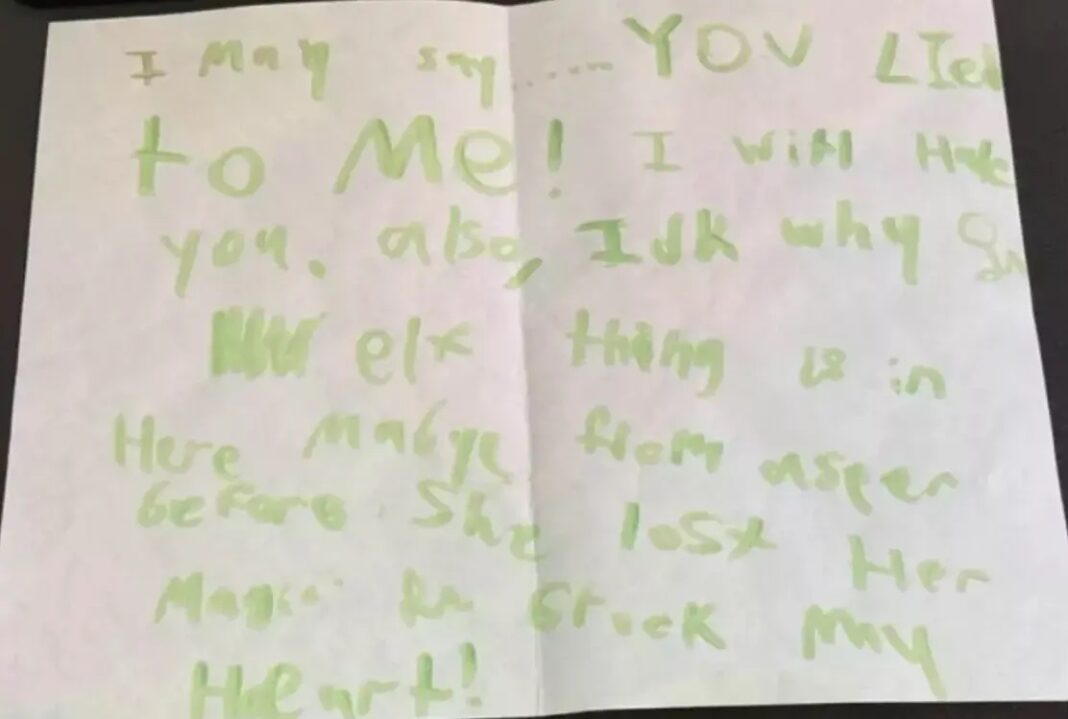 I May say ..... YOU LIed
to Me! I will Hate
you. also, Idk why
elf thing is in
Here Mabye from asper
before She lost Her
Magic
Heart!